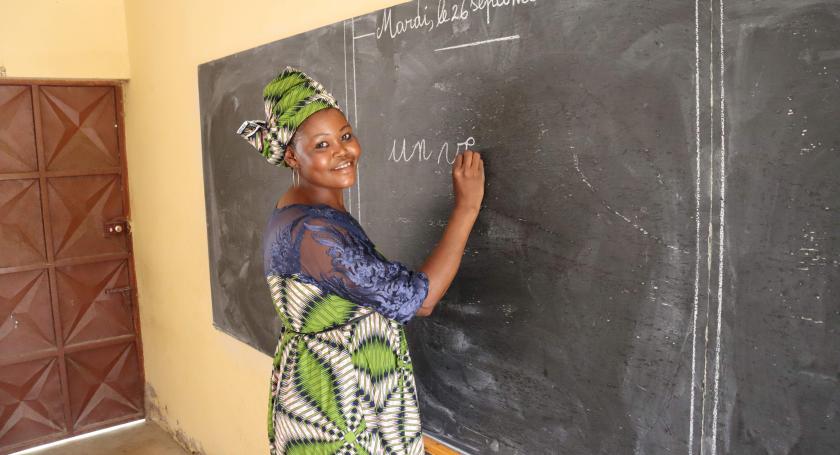 Mardi, le 26 septembre
un ve